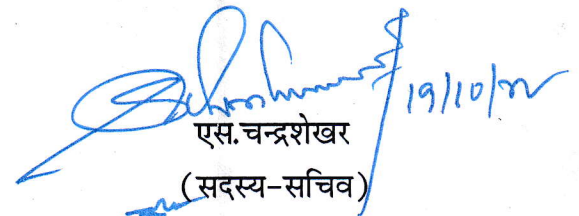 19/10/22
एस.चन्द्रशेखर
(सदस्य-सचिव)